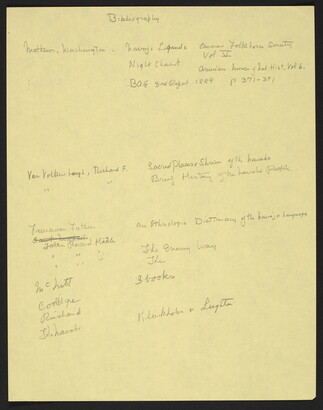 Bibliography
Matthews, Washington - Navajo Legends American Folklore Society
Vol. V
Night Chant American Museum of Nat Hist. Vol 6.
BAE 3rd Report 1884 p 371-391
Van Valkenburgh, Richard F. Sacred Places & Shrines of the Navaho
" " Brief History of the Navaho People
Franciscan Fathers An Ethnologic Dictionary of the Navajo Language
Father Berard Haile The Enemy Way
" " " The
McNitt 3 books
Coolidge
Reichard Kluckhohn & Leighton